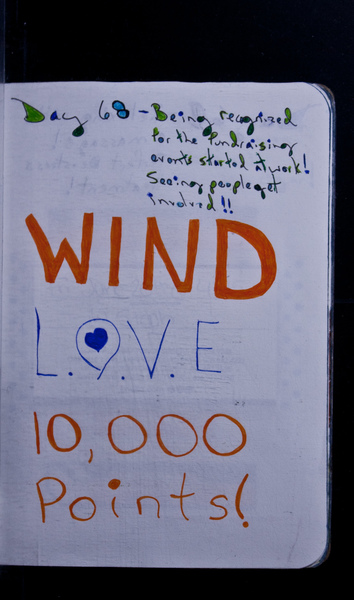 Day 68 - Being recognized
for the fundraising
events started at work!
Seeing people get
involved!!
WIND
L.O.V.E
10,000
Points!